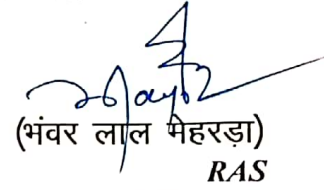 (भंवर लाल मेहरड़ा)
RAS